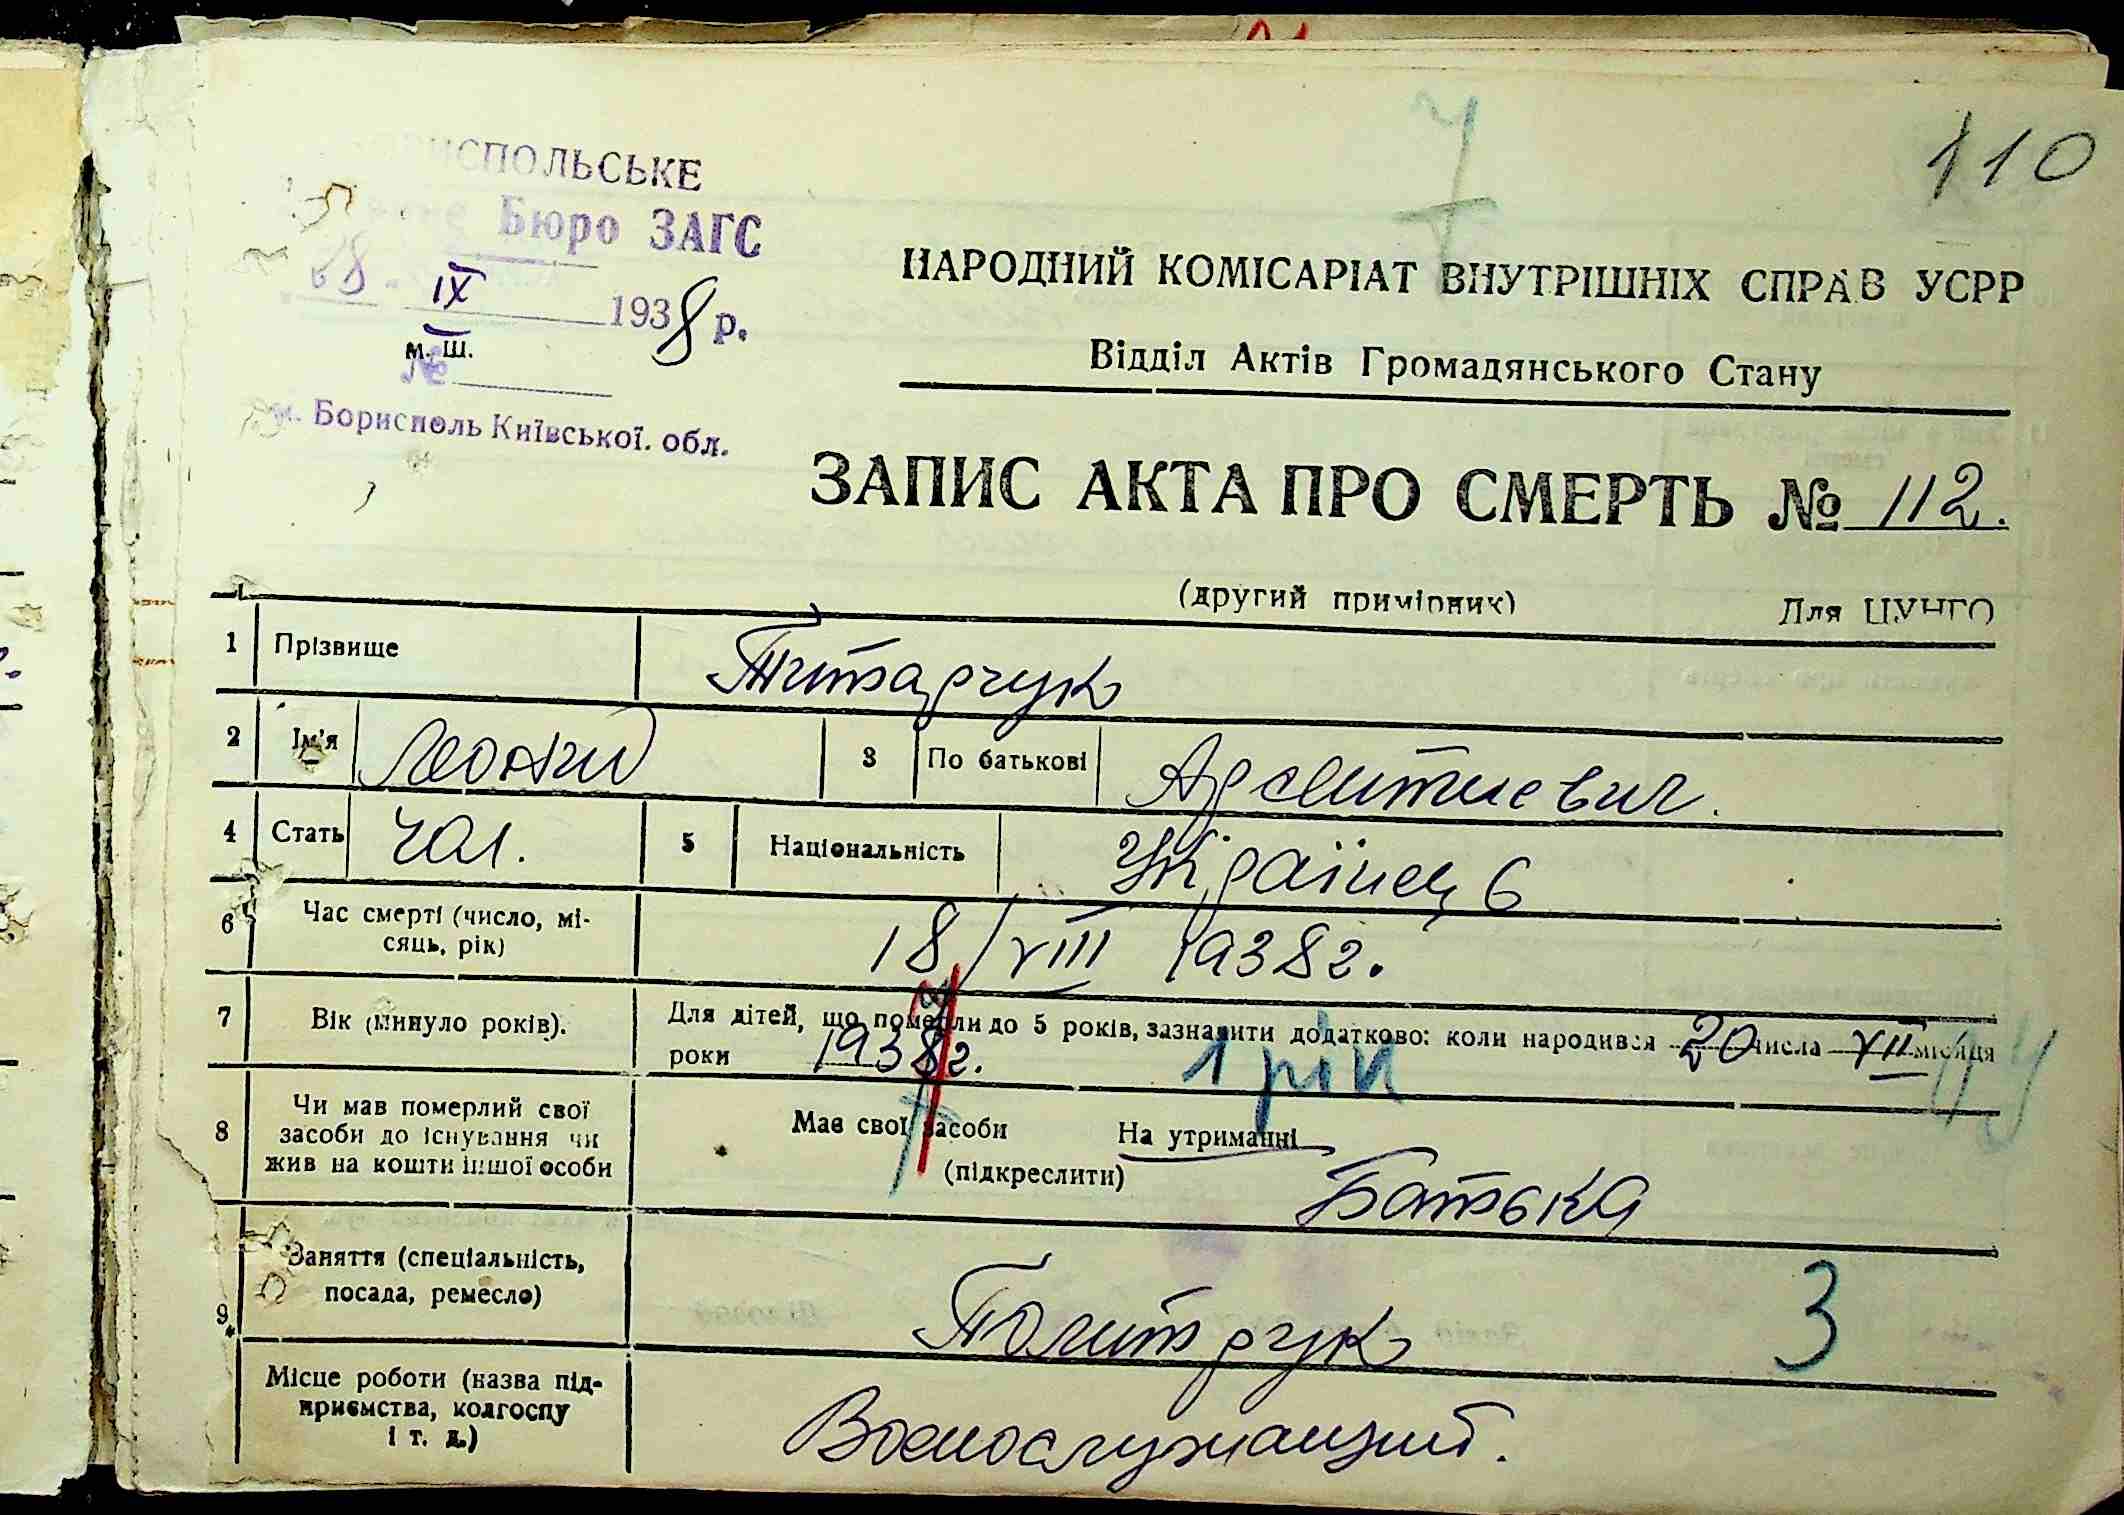 110
БОРИСПОЛЬСЬКЕ
Бюро ЗАГС
28. IX 1938 р.
м. ш.
№
м. Борисполь Київської. обл.
НАРОДНИЙ КОМІСАРІАТ ВНУТРІШНІХ СПРАВ УСРР
Відділ Актів Громадянського Стану
ЗАПИС АКТА ПРО СМЕРТЬ № 112.
(другий примірник) Для ЦУНГО
1 Прізвище Титарчук
2 Ім'я 3 По батькові
4 Стать чол. 5 Національність Українець
6 Час смерті (число, мі-
сяць, рік) 18/VIII 1938 г.
7 Вік (минуло років). Для дітей, що померли до 5 років, зазначити додатково: коли народився 20 числа VII місяця
роки 1938 г. 1 рік
8 Чи мав померлий свої
засоби до існування чи
жив на кошти іншої особи
Має свої засоби На утриманні
(підкреслити) Батька
9 Заняття (спеціальність,
посада, ремесло) Политрук 3
Місце роботи (назва під-
приємства, колгоспу
і т. д.) Военослужащий.